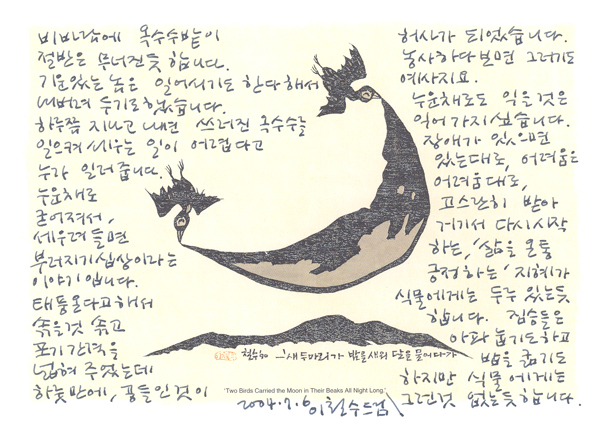 비바람에 옥수수밭이
절반은 무너진듯 합니다.
기운있는 놈은 일어서기도 한다 해서
내버려 두기로 했습니다.
하루쯤 지나고 나면 쓰러진 옥수수를
일으켜 세우는 일이 어렵다고
누가 일러줍니다.
누운채로
굳어져서,
세우려 들면
부러지기 십상이라는
이야기 입니다.
태풍온다고 해서
솎을것 솎고
포기간격을
넓혀 주었는데
하룻만에, 공들인 것이
허사가 되었습니다.
농사하다보면 그러기도
여사지요.
누운채로도 익을 것은
익어가지 싶습니다.
장애가 있으면
있는대로, 어려움은
어려움대로,
고스란히 받아
거기서 다시 시작
하는, '삶을 온통
긍정하는' 지혜가
식물에게는 두루 있는듯
합니다. 짐승들은
아파 눕기도하고
밥을 굶기도
하지만 식물에게는
그런것 없는듯 합니다.
철수 ─ 새 두마리가 밤을 새워 달을 물어다가
'Two Birds Carried the Moon in Their Beaks All Night Long.'
2004.7.6 이철수드림